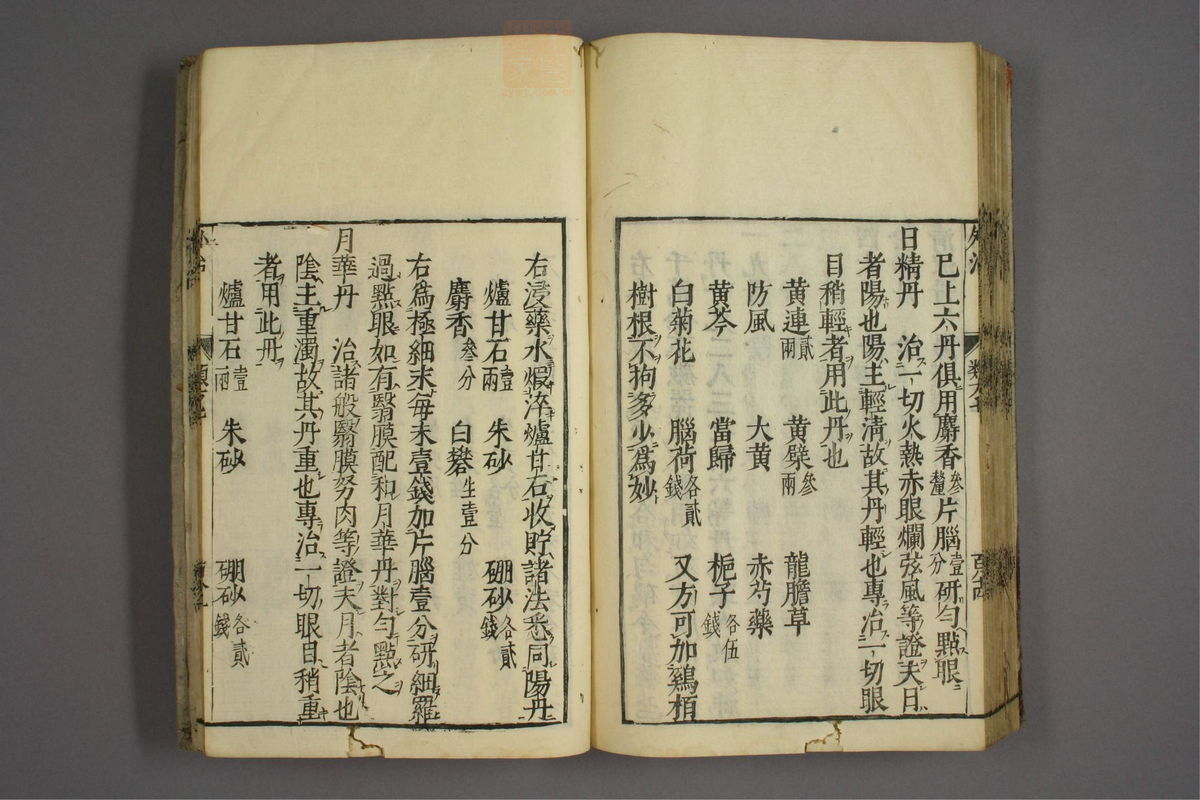 已上六丹俱用麝香參釐片腦壹分研勻點眼
日精丹 治一切火熱赤眼爛弦風等證夫日
者陽也陽主輕清故其丹輕也專治一切眼
目稍輕者用此丹也
黃連貳兩 黃檗參兩 龍膽草
防風 大黃 赤芍藥
黃芩 當歸 梔子各伍錢
白菊花 腦荷各貳錢 又方可加鷄栢
樹根不狗多少爲妙
右浸藥水煆淬爐甘石收貯諸法悉同陽丹
爐甘石壹兩 朱砂 硼砂各貳錢
麝香叁分 白礬生壹分
右爲極細末每末壹錢加片腦壹分研細羅
過點眼如有翳膜配和月華丹對勻點之
月華丹 治諸般翳膜努肉等證夫月者陰也
陰主重濁故其丹重也專治一切眼目稍重
者用此丹
爐甘石壹兩 朱砂 硼砂各貳錢